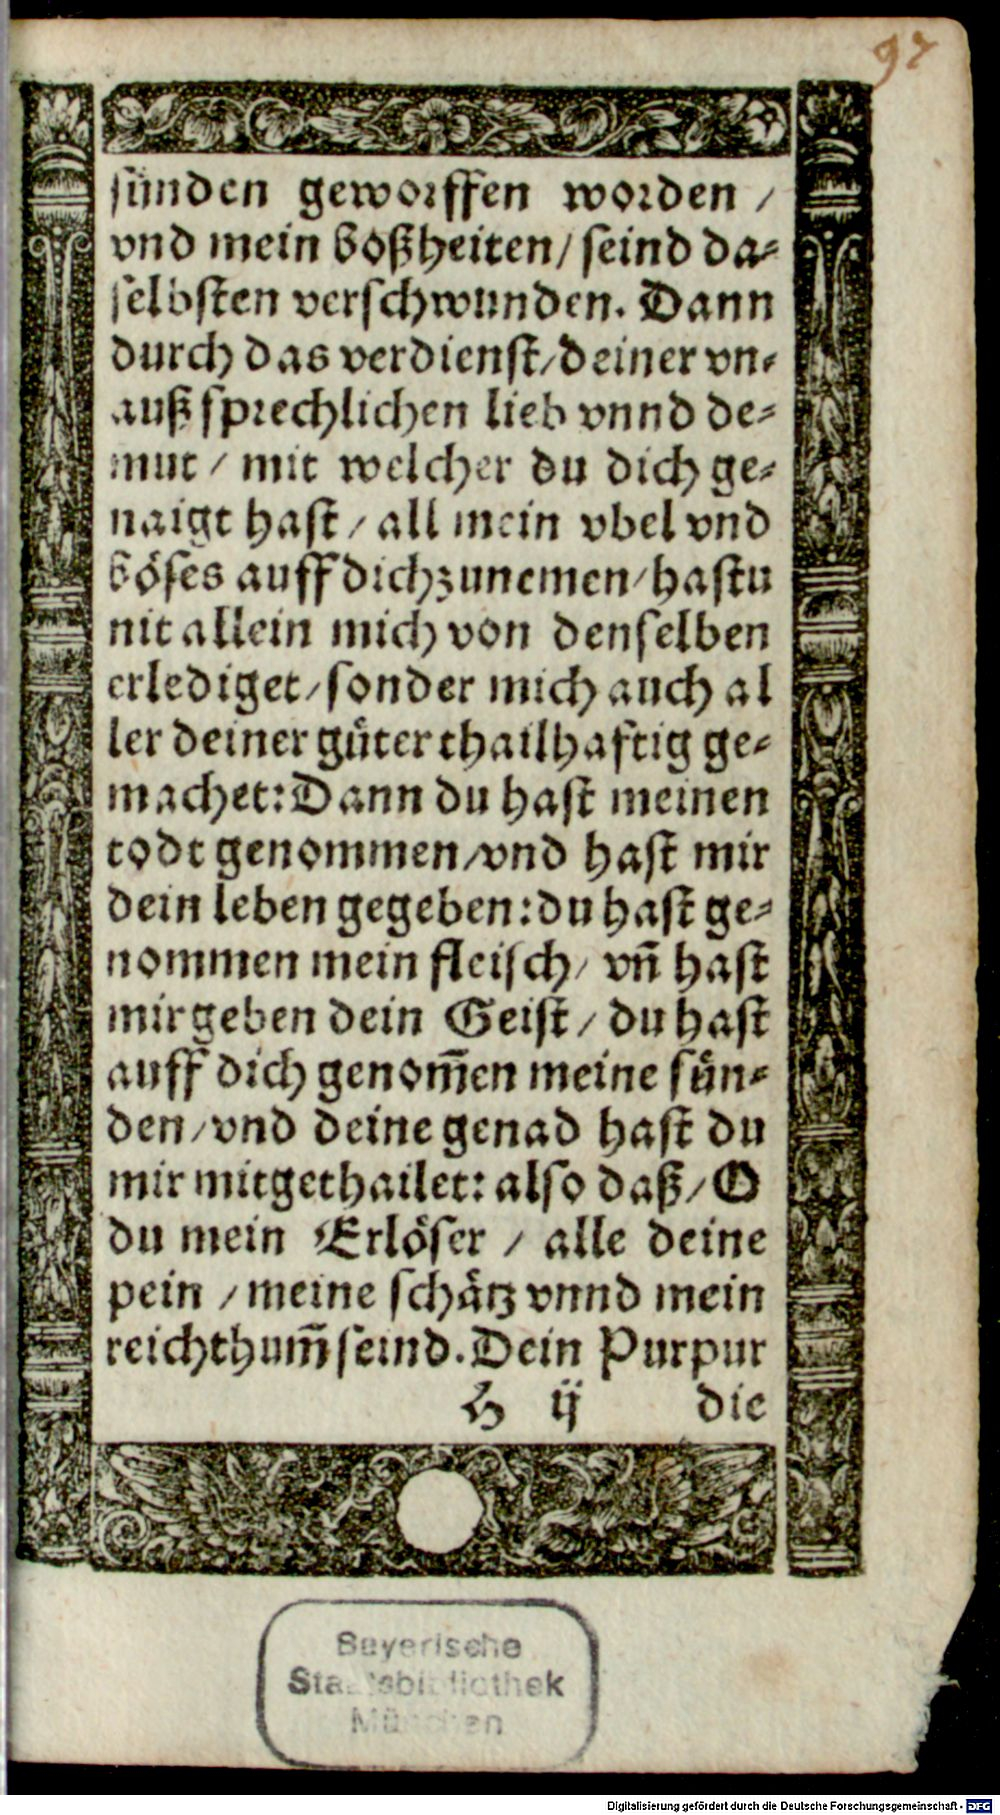 97
sünden geworffen worden /
vnd mein boßheiten / seind da⸗
selbsten verschwunden. Dann
durch das verdienst / deiner vn⸗
außsprechlichen lieb vnnd de⸗
mut / mit welcher du dich ge⸗
naigt hast / all mein vbel vnd
böses auff dich zunemen / hastu
nit allein mich von denselben
erlediget / sonder mich auch al
ler deiner güter thailhafftig ge⸗
machet: Dann du hast meinen
todt genommen / vnd hast mir
dein leben gegeben: du hast ge⸗
nommen mein fleisch / vñ hast
mir geben dein Geist / du hast
auff dich genom̃en meine sün⸗
den / vnd deine genad hast du
mir mitgethailet: also daß / O
du mein Erlöser / alle deine
pein / meine schätz vnnd mein
reichthum̃ seind. Dein Purpur
H ij die
Bayerische
Staatsbibliothek
München
Digitalisierung gefördert durch die Deutsche Forschungsgemeinschaft - DFG